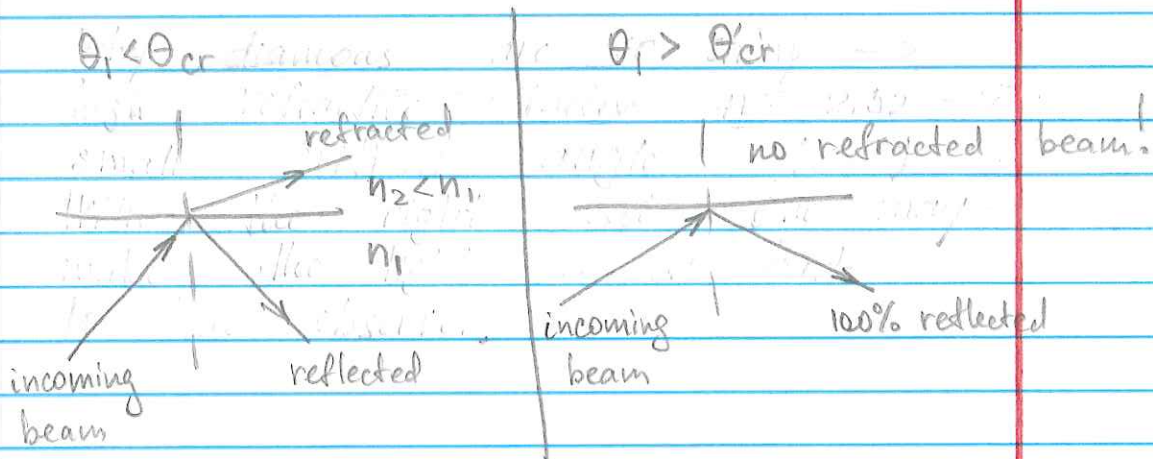 θ₁ < θcr
refracted
n₂ < n₁
n₁
incoming
beam
reflected
θ₁ > θ'cr
no refracted beam!
incoming
beam
100% reflected